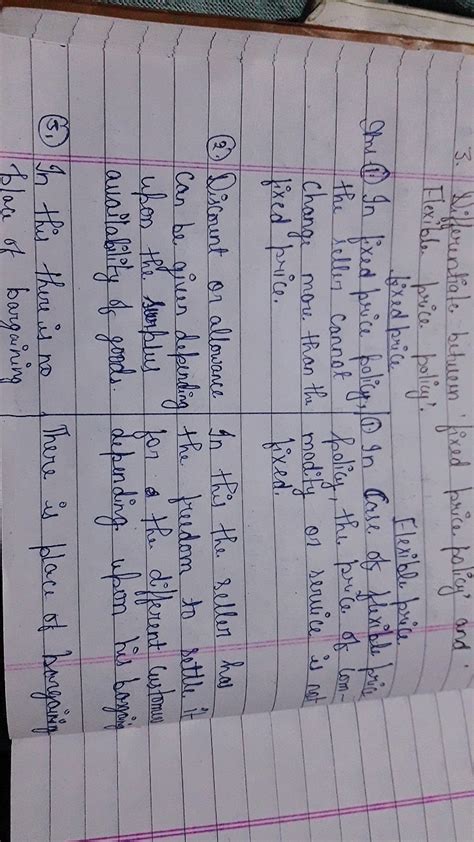 3. Differentiate between 'fixed price policy' and
Flexible price policy'.
fixed price
Ans ① In fixed price policy,
the seller cannot
Change more than the
fixed price.
② Discount or allowance
can be given depending
upon the surplus
availability of goods.
③ In this there is no
place of bargaining
Flexible price
① In Case of flexible price
policy, the price of com-
modify or service is not
fixed.
In this the seller has
the freedom to settle it
for the different customer
depending upon his
There is place of bargaining